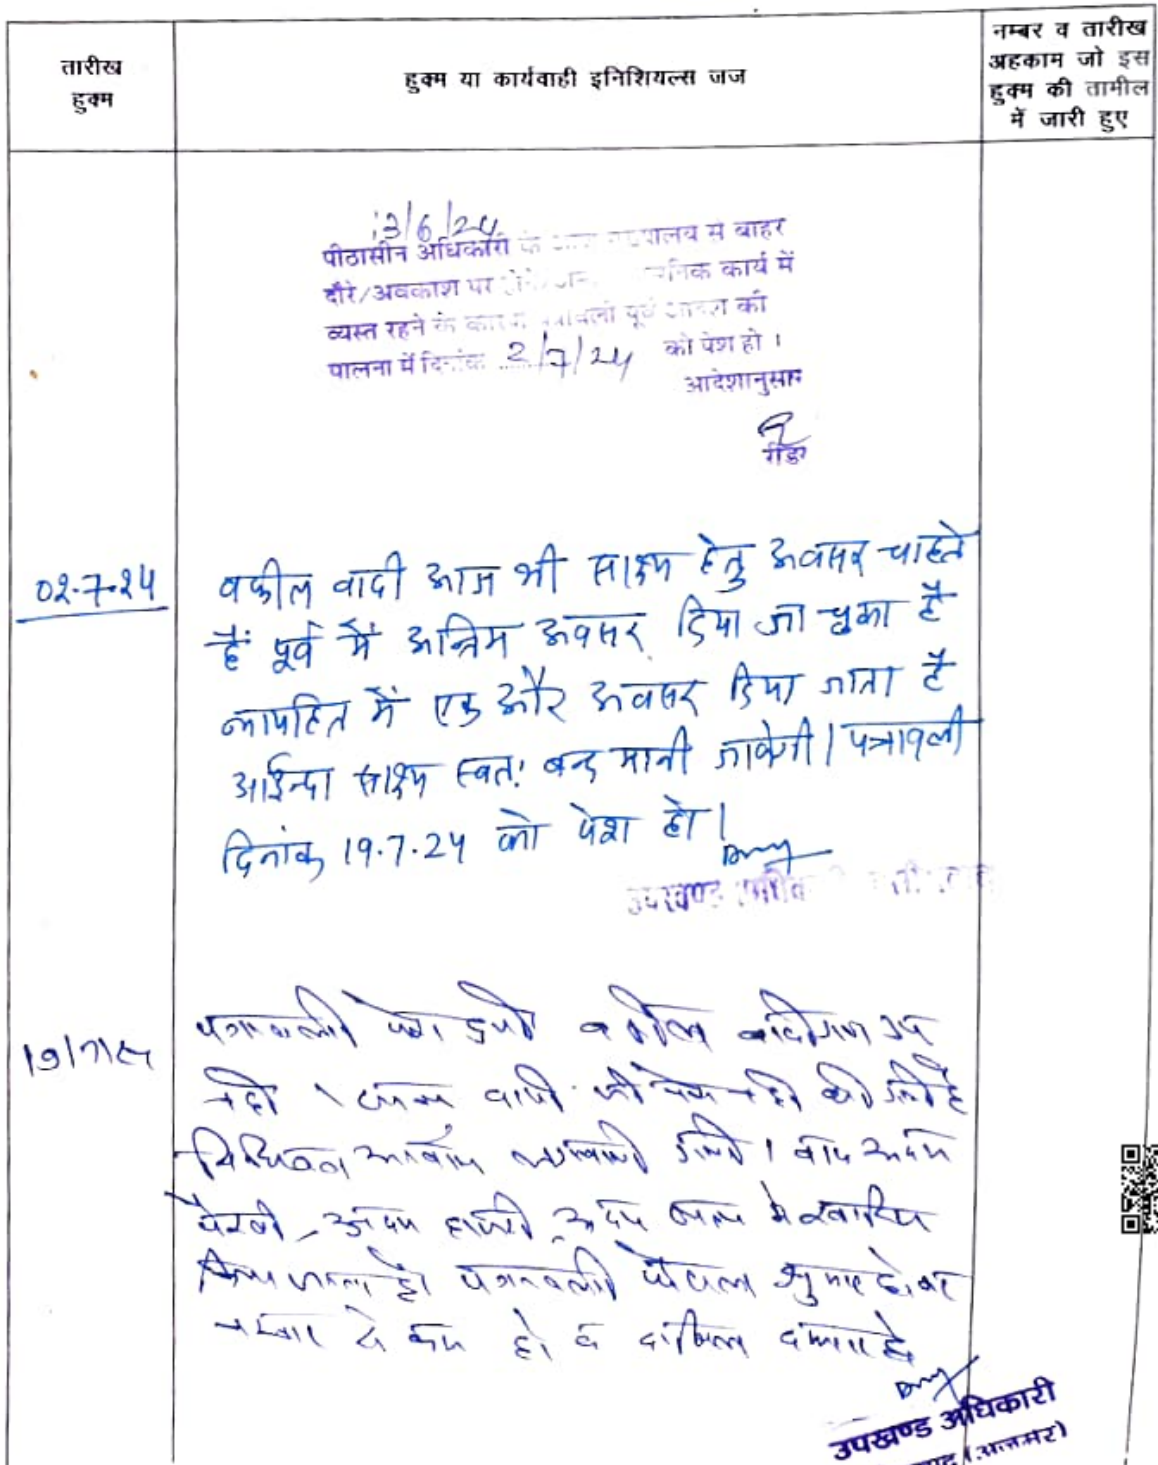 तारीख
हुक्म
हुक्म या कार्यवाही इनिशियल्स जज
नम्बर व तारीख
अहकाम जो इस
हुक्म की तामील
में जारी हुए
13/6/24
पीठासीन अधिकारी के से बाहर
दौरे/अवकाश पर कार्य में
व्यस्त रहने के कारण पूर्व की
पालना में दिनांक 2/7/24 को पेश हो ।
आदेशानुसार
रीडर
02-7-24
वकील वादी आज भी साक्ष्य हेतु अवसर चाहते
हैं पूर्व में अन्तिम अवसर दिया जा चुका है
न्यायहित में एक और अवसर दिया जाता है
आईन्दा साक्ष्य स्वत: बन्द मानी जावेगी। पत्रावली
दिनांक 19.7.24 को पेश हो।
उपखण्ड
19/7/24
पत्रावली पेश हुयी वकील वादीगण उप
नही । वादी की पेश नही की गयी है
गयी । वाद अदम
पैरवी, अदम हाजरी, अदम में खारिज
किया जाता है। पत्रावली फैसल शुमार होकर
नम्बर से कम हो व दाखिल दफ्तर हो
उपखण्ड अधिकारी